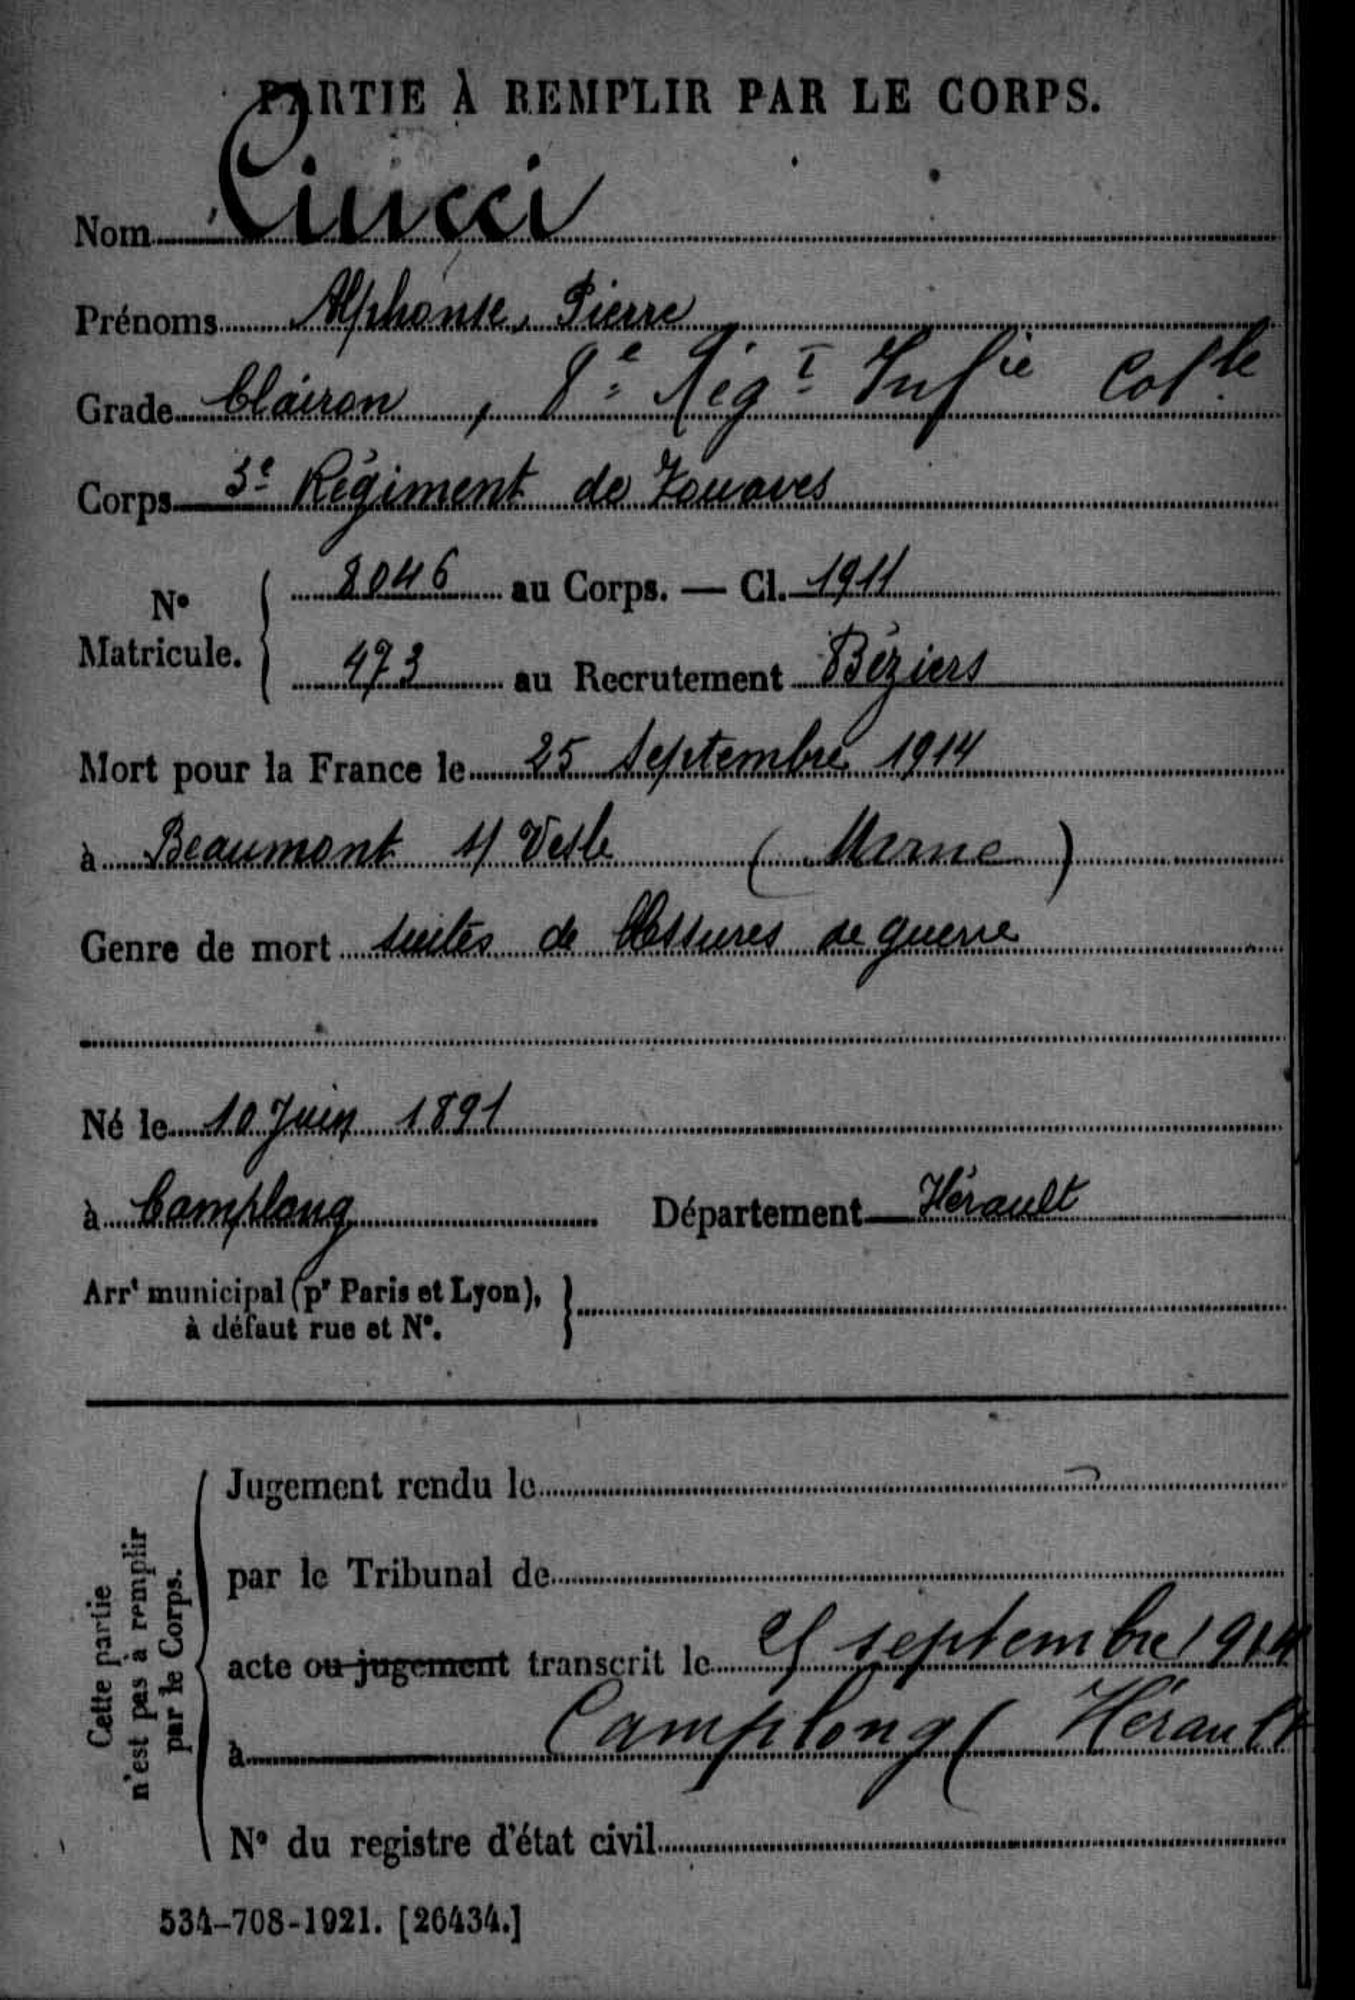 PARTIE À REMPLIR PAR LE CORPS.
Nom Ciucci
Prénoms Alphonse, Pierre
Grade Clairon, 8e Régt Infie Colle
Corps 3e Régiment de Zouaves
No Matricule. 2046 au Corps. — Cl. 1911
473 au Recrutement Béziers
Mort pour la France le 25 Septembre 1914
à Beaumont s/ Vesle (Marne)
Genre de mort suites de blessures de guerre
Né le 10 Juin 1891
à Camplong Département Hérault
Arrt municipal (pr Paris et Lyon),
à défaut rue et No.
Cette partie
n'est pas à remplir
par le Corps.
Jugement rendu le
par le Tribunal de
acte ou jugement transcrit le 25 septembre 1914
à Camplong (Hérault
No du registre d'état civil
534-708-1921. [26434.]